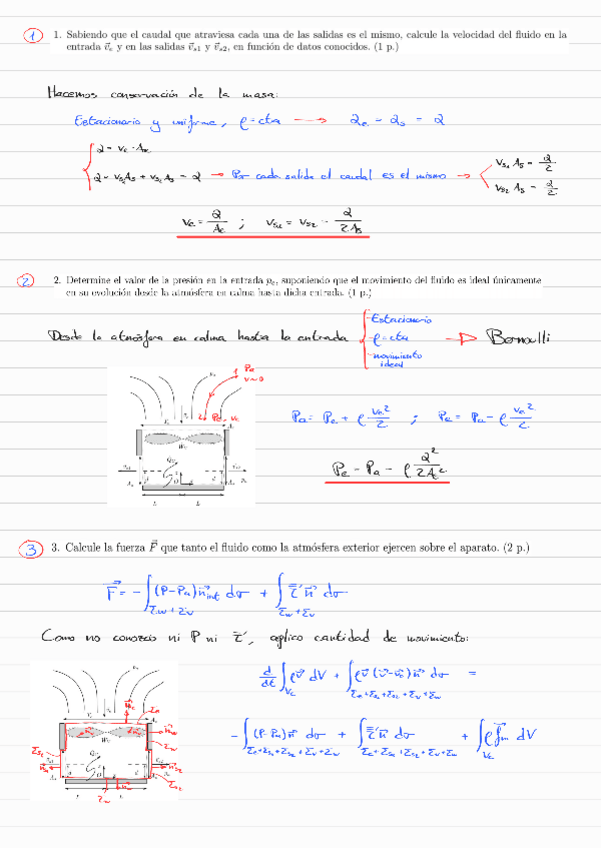 1 1. Sabiendo que el caudal que atraviesa cada una de las salidas es el mismo, calcule la velocidad del fluido en la
entrada v⃗e y en las salidas v⃗s1 y v⃗s2, en función de datos conocidos. (1 p.)
Hacemos conservación de la masa:
Estacionario y uniforme, ρ=cta → Qe = Qs = Q
Q = ve·Ae
Q = vs1As + vs2As = Q → Por cada salida el caudal es el mismo → vs1 As = Q/2
vs2 As = Q/2
ve = Q/Ae ; vs1 = vs2 = Q/2As
2 2. Determine el valor de la presión en la entrada pe, suponiendo que el movimiento del fluido es ideal únicamente
en su evolución desde la atmósfera en calma hasta dicha entrada. (1 p.)
Desde la atmósfera en calma hasta la entrada
Estacionario
ρ=cta
movimiento
ideal
→ Bernoulli
Pa
v≈0
Pe, ve
Pa = Pe + ρ ve²/2 ; Pe = Pa − ρ ve²/2
Pe = Pa − ρ Q²/2Ae²
3 3. Calcule la fuerza F⃗ que tanto el fluido como la atmósfera exterior ejercen sobre el aparato. (2 p.)
F⃗ = −∫(P−Pa)n⃗int dσ + ∫τ̿' n⃗ dσ
Σw+Σv Σw+Σv
Como no conozco ni P ni τ̿', aplico cantidad de movimiento:
d/dt ∫ρv⃗ dV + ∫ρv⃗ (v⃗−v⃗c)n⃗ dσ =
Vc Σe+Σs1+Σs2+Σv+Σw
−∫(P−Pa)n⃗ dσ + ∫τ̿' n⃗ dσ + ∫ρf⃗m dV
Σe+Σs1+Σs2+Σv+Σw Σe+Σs1+Σs2+Σv+Σw Vc